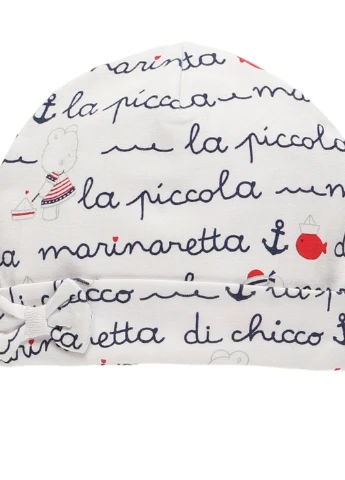 marinta
la piccola ma
la piccola
la piccola
a marinaretta d
chicco
marinaretta di chicco